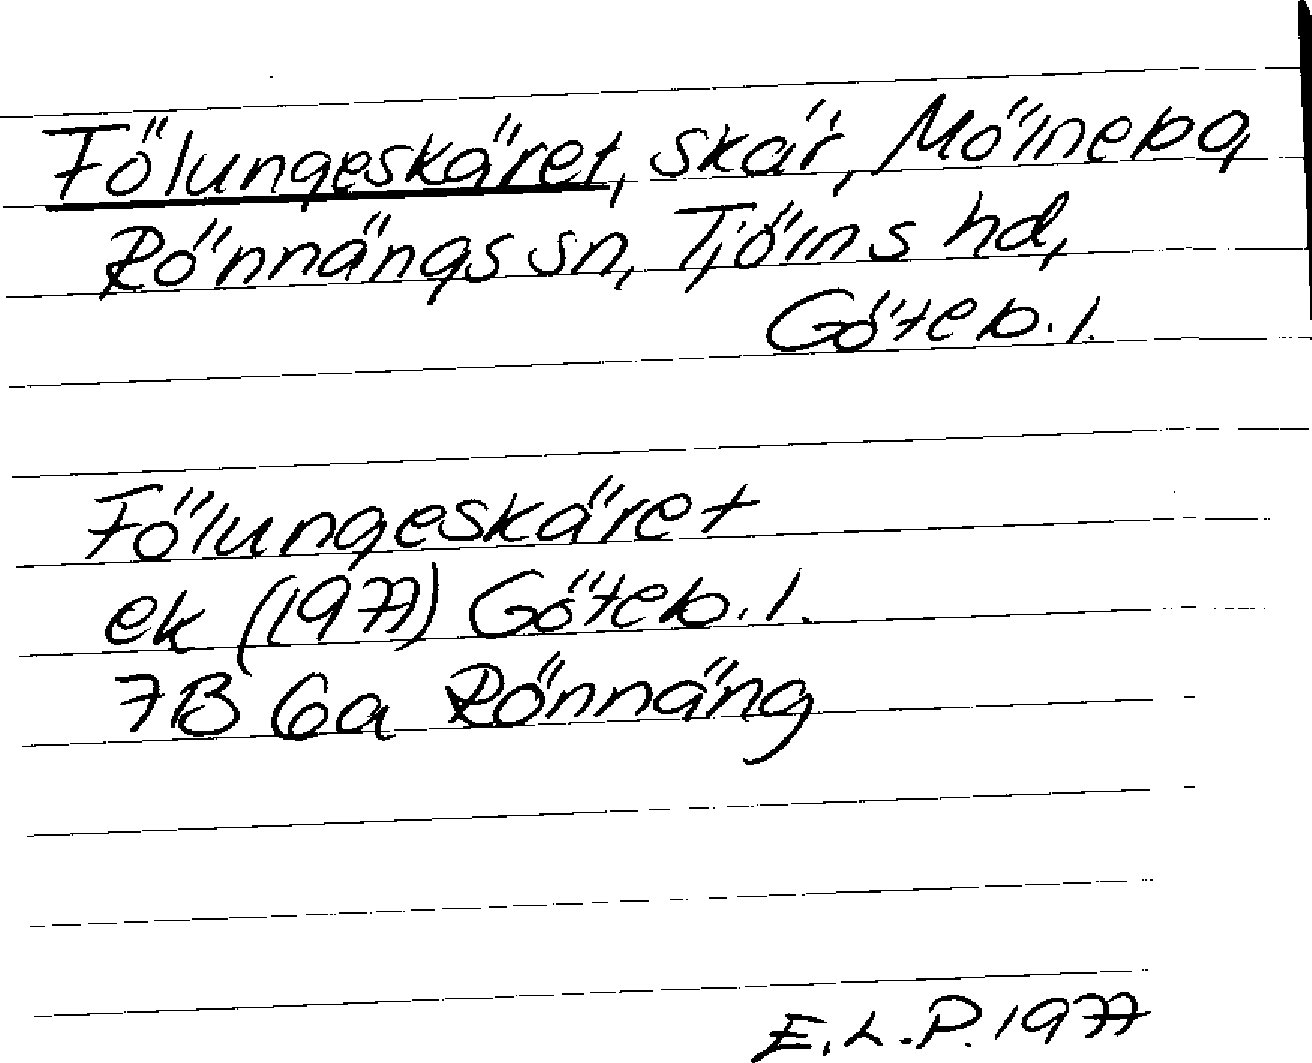 Fölungeskäret, skär,
Rönnängs sn, Tjörns hd,
Göteb. l.
Fölungeskäret
ek (1977) Göteb. l.
7B 6a Rönnäng
E.L.P. 1977